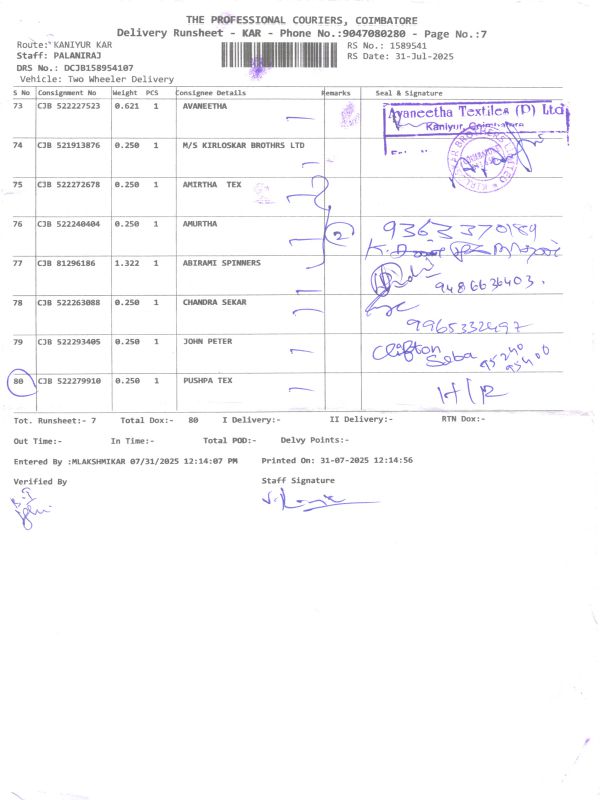 THE PROFESSIONAL COURIERS, COIMBATORE
Delivery Runsheet - KAR - Phone No.:9047080280 - Page No.:7
Route: KANIYUR KAR RS No.: 1589541
Staff: PALANIRAJ RS Date: 31-Jul-2025
DRS No.: DCJB158954107
Vehicle: Two Wheeler Delivery
S No Consignment No Weight PCS Consignee Details Remarks Seal & Signature
73 CJB 522227523 0.621 1 AVANEETHA Avaneetha Textiles (P) Ltd
Kaniyur, Coimbatore
74 CJB 521913876 0.250 1 M/S KIRLOSKAR BROTHRS LTD
75 CJB 522272678 0.250 1 AMIRTHA TEX
76 CJB 522240404 0.250 1 AMURTHA 2 9363370189
77 CJB 81296186 1.322 1 ABIRAMI SPINNERS 9486636403.
78 CJB 522263088 0.250 1 CHANDRA SEKAR
9965332497
79 CJB 522293405 0.250 1 JOHN PETER Clifton
Seba 95240
95400
80 CJB 522279910 0.250 1 PUSHPA TEX H/R
Tot. Runsheet:- 7 Total Dox:- 80 I Delivery:- II Delivery:- RTN Dox:-
Out Time:- In Time:- Total POD:- Delvy Points:-
Entered By :MLAKSHMIKAR 07/31/2025 12:14:07 PM Printed On: 31-07-2025 12:14:56
Verified By Staff Signature